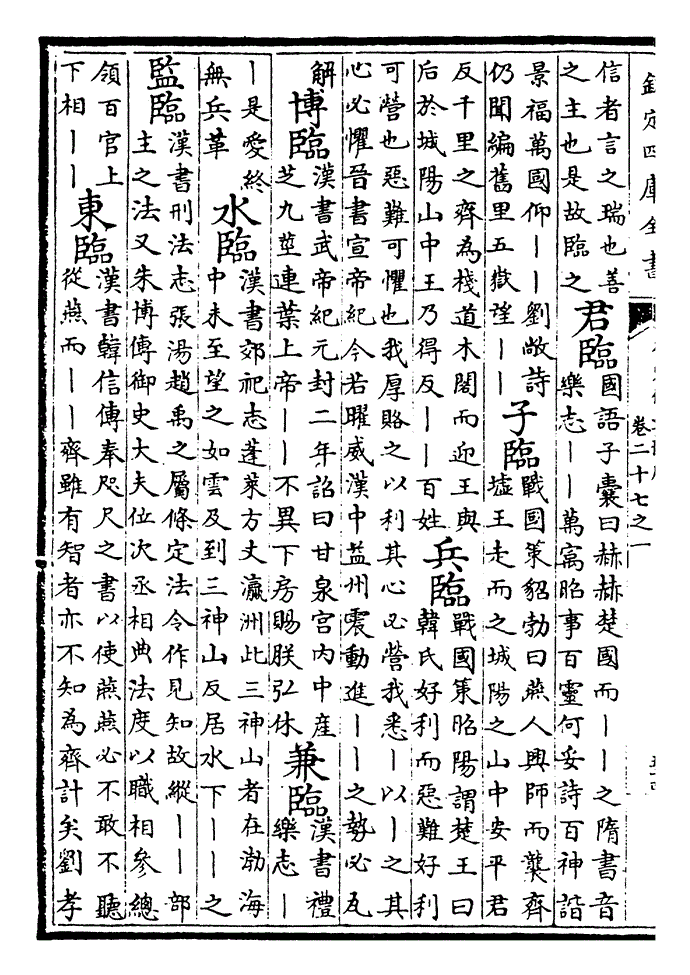 欽定四庫全書
卷二十七之一
信者言之瑞也善
之主也是故臨之
君臨
國語子囊曰赫赫楚國而丨丨之隋書音
樂志丨丨萬㝢昭事百靈何妥詩百神諧
景福萬國仰丨丨劉敞詩
仍聞編舊里五嶽望丨丨
子臨
戰國策貂勃曰燕人興師而襲齊
墟王走而之城陽之山中安平君
反千里之齊為棧道木閣而迎王與
后於城陽山中王乃得反丨丨百姓
兵臨
戰國策昭陽謂楚王曰
韓氏好利而惡難好利
可營也惡難可懼也我厚賂之以利其心必營我悉丨以丨之其
心必懼晉書宣帝紀今若曜威漢中益州震動進丨丨之勢必瓦
解
博臨
漢書武帝紀元封二年詔曰甘泉宮內中産
芝九莖連葉上帝丨丨不異下房賜朕弘休
兼臨
漢書禮
樂志丨
丨是愛終
無兵革
水臨
漢書郊祀志蓬萊方丈瀛洲此三神山者在渤海
中未至望之如雲及到三神山反居水下丨丨之
監臨
漢書刑法志張湯趙禹之屬條定法令作見知故縱丨丨部
主之法又朱博傳御史大夫位次丞相典法度以職相參總
領百官上
下相丨丨
東臨
漢書韓信傳奉咫尺之書以使燕燕必不敢不聽
從燕而丨丨齊雖有智者亦不知為齊計矣劉孝